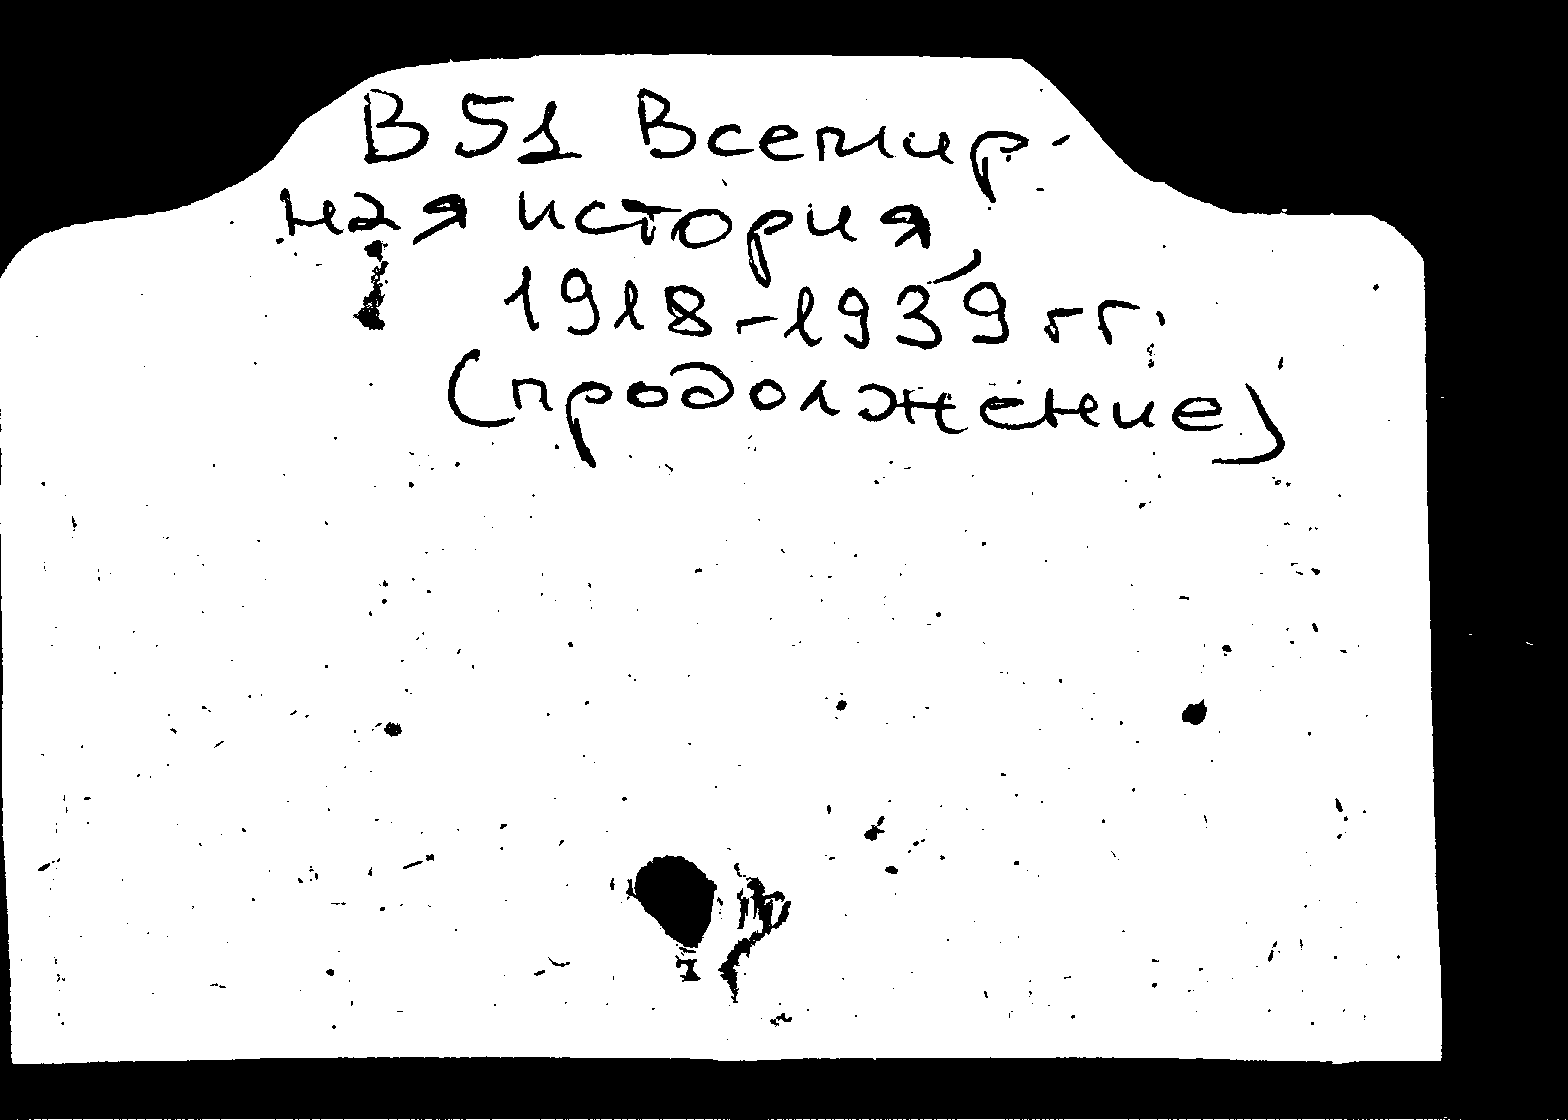 В 51 Всемир-
ная история,
1918-1939 гг.
(продолжение)